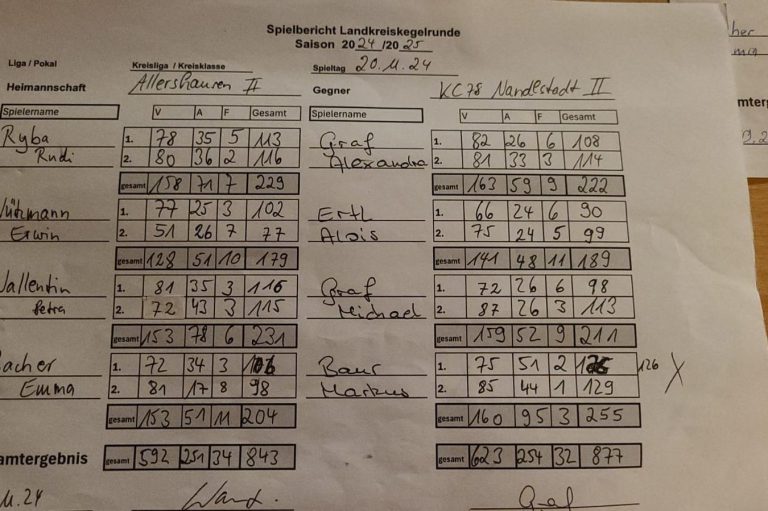 Spielbericht Landkreiskegelrunde
Saison 2024 /2025
Liga / Pokal Kreisliga / Kreisklasse Spieltag 20.11.24
Heimannschaft Allershausen II Gegner KC78 Nandlstadt II
Spielername V A F Gesamt Spielername V A F Gesamt
Ryba 1. 78 35 5 113 Graf 1. 82 26 6 108
Rudi 2. 80 36 2 116 Alexandra 2. 81 33 3 114
gesamt 158 71 7 229 gesamt 163 59 9 222
1. 77 25 3 102 Ertl 1. 66 24 6 90
Erwin 2. 51 26 7 77 Alois 2. 75 24 5 99
gesamt 128 51 10 179 gesamt 141 48 11 189
allentin 1. 81 35 3 116 Graf 1. 72 26 6 98
Petra 2. 72 43 3 115 Michael 2. 87 26 3 113
gesamt 153 78 6 231 gesamt 159 52 9 211
acher 1. 72 34 3 106 Baur 1. 75 51 2 126 X
Emma 2. 81 17 8 98 Markus 2. 85 44 1 129
gesamt 153 51 11 204 gesamt 160 95 3 255
amtergebnis gesamt 592 251 34 843 gesamt 623 254 32 877
11.24 Graf